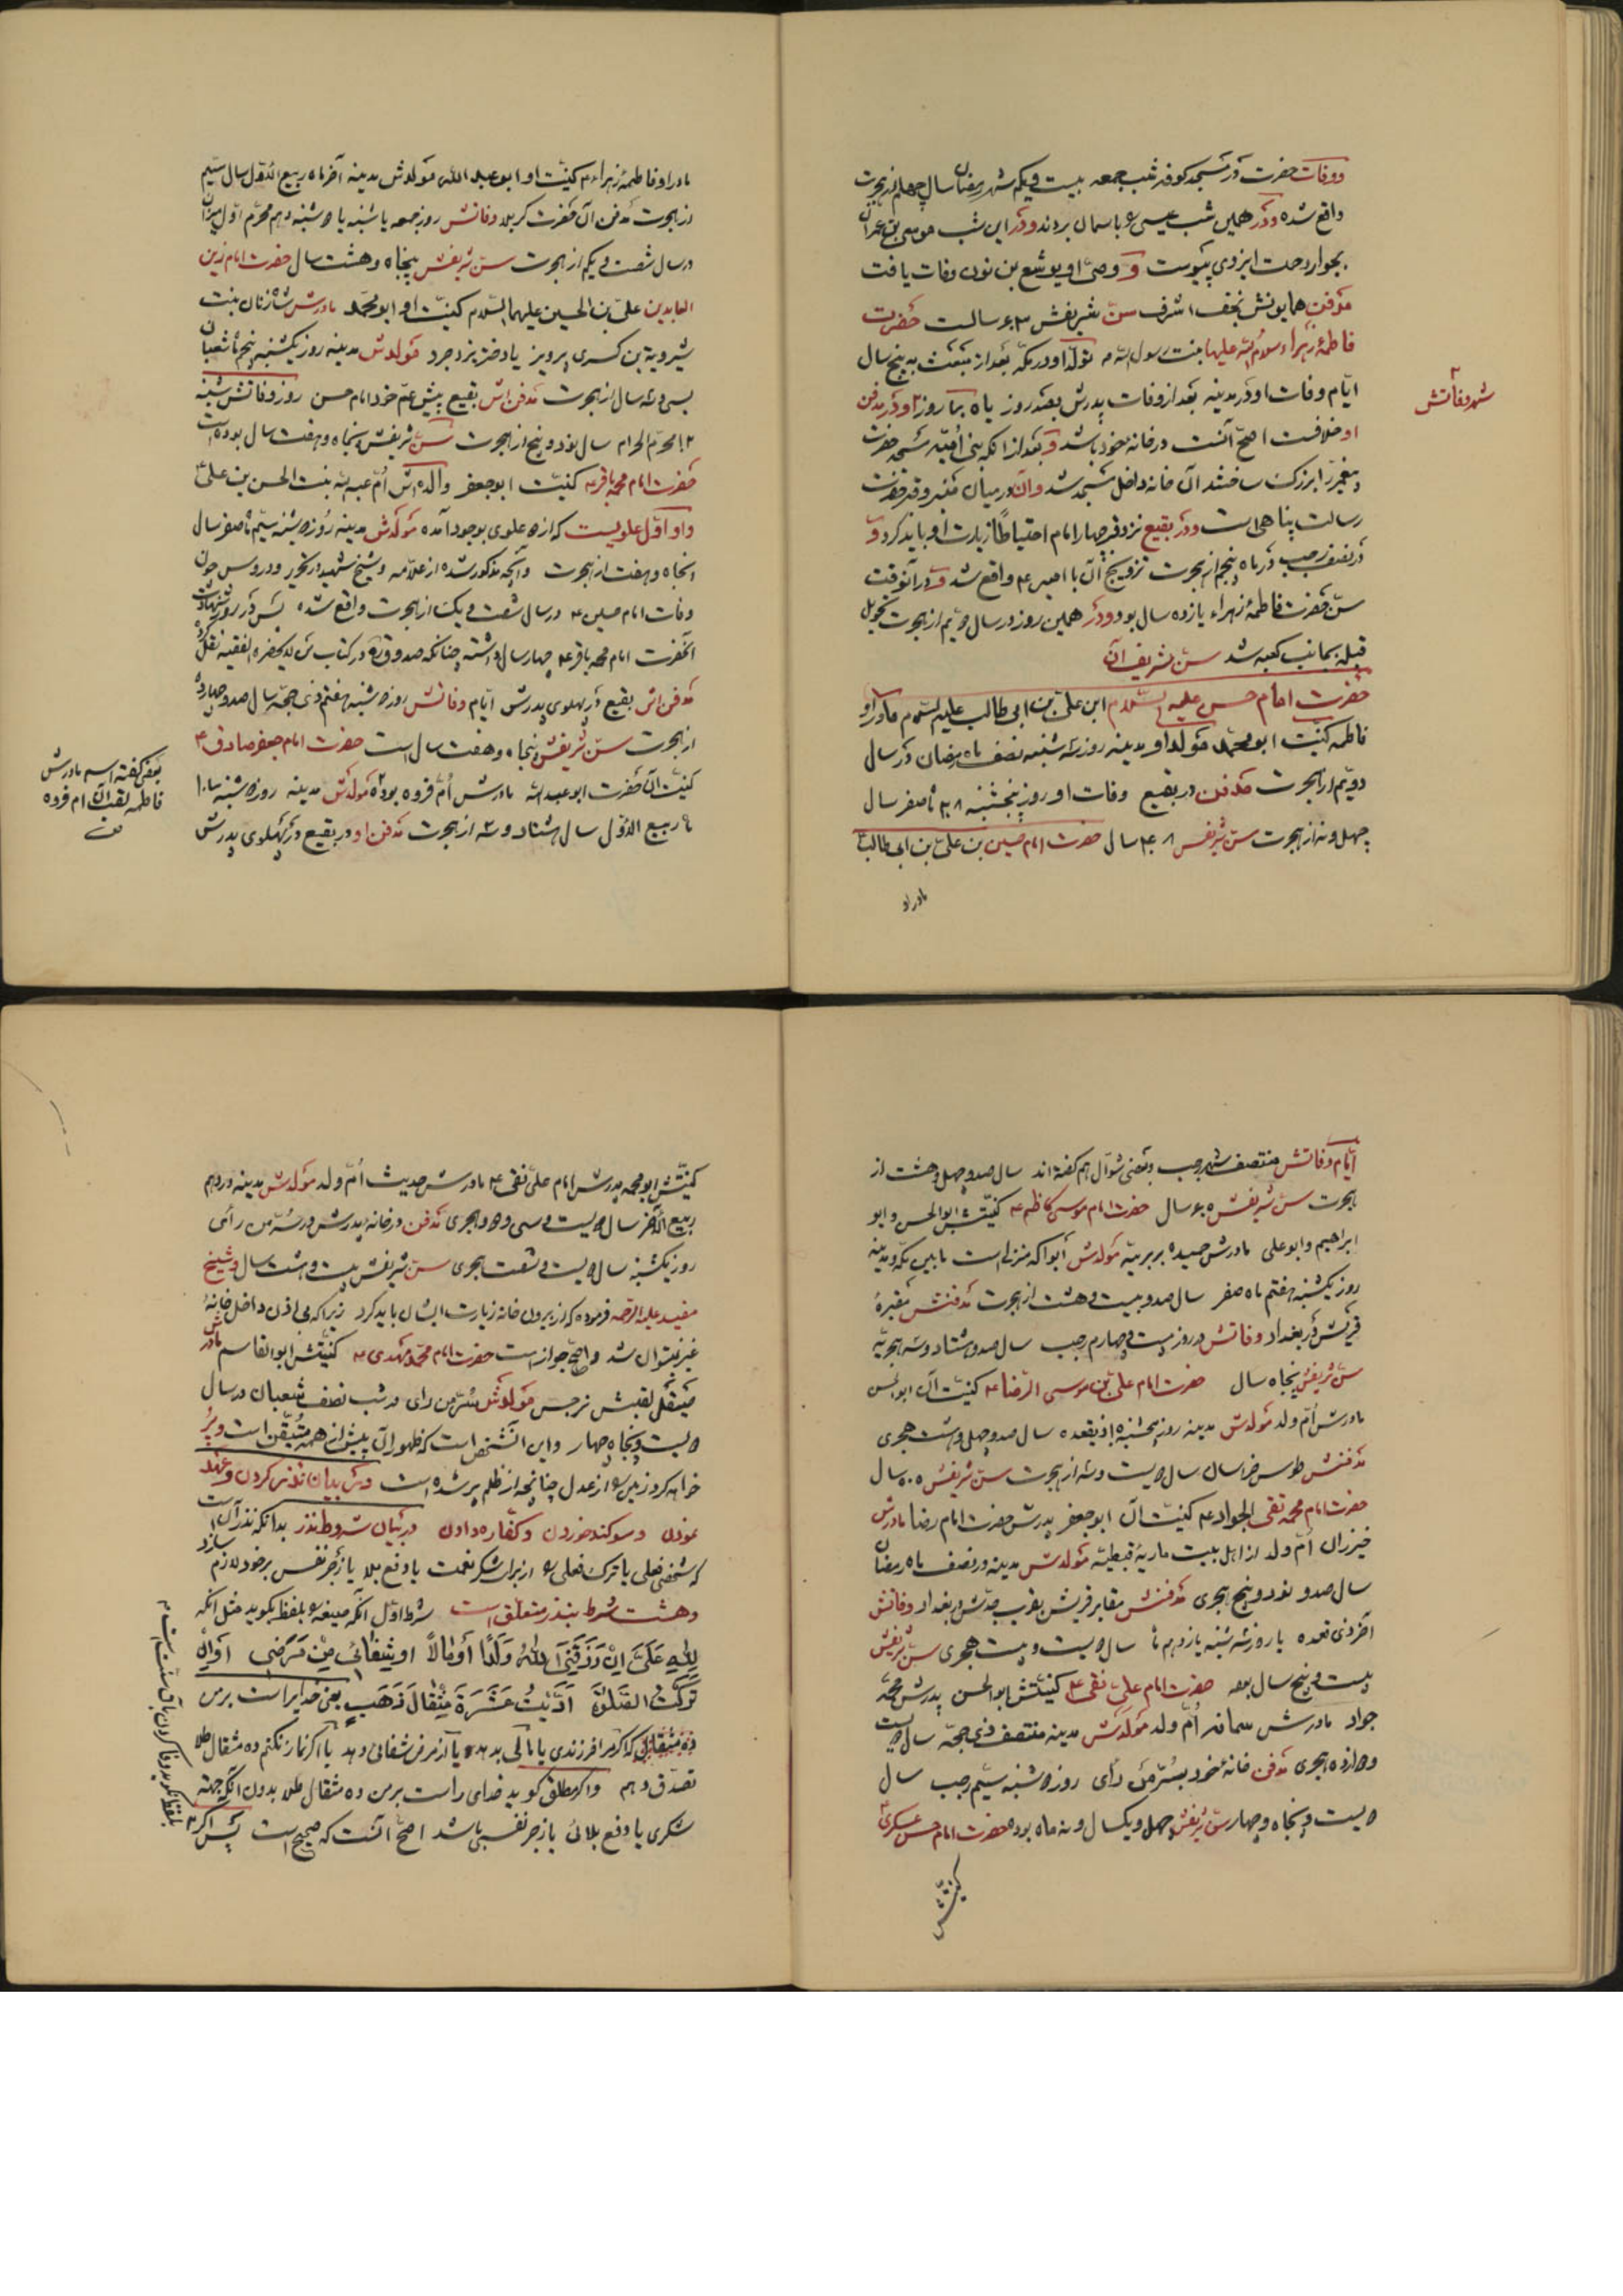 ووفات حضرت در مسجد کوفه شب جمعه بیست و یکم شهر رمضان سال چهلم از هجرت
واقع شده و در همین شب عیسی را باسمان بردند و در این شب موسی بن عمران
بجوار رحمت ایزدی پیوست و وصیّ او یوشع بن نون وفات یافت
مدفن همایونش نجف اشرف سنّ شریفش ۶۳ سالست حضرت
فاطمهٔ زهراء سلام الله علیها بنت رسول الله ص تولّد او در مکّه بعد از مبعث به پنج سال
شهر وفاتش
ایّام وفات او در مدینه بعد از وفات پدرش بصد روز یا ه بما روز و در مدفن
او خلافست اصحّ آنست در خانهٔ خود باشد و بعد از آنکه بنی اُمیّه مسجد حضرت
پیغمبر را بزرگ ساختند آن خانه داخل مسجد شد و آن در میان منبر و قبر حضرت
رسالت پناهی است و در بقیع نزد قبر چهار امام احتیاطاً زیارت او باید کرد و
در نصف رجب در ماه پنجم از هجرت تزویج آن با امیر ع واقع شد و در آنوقت
سنّ حضرت فاطمهٔ زهراء یازده سال بود و در همین روز در سال دویّم از هجرت تحویل
قبله بجانب کعبه شد سنّ شریف آن
حضرت امام حسن علیه السّلام ابن علیّ بن ابی طالب علیه السّلام مادر او
فاطمه کنیت ابو محمّد مولد او مدینه روز سه شنبه نصف ماه رمضان در سال
دویّم از هجرت مدفن در بقیع وفات او روز پنجشنبه ۲۸ ماه صفر سال
چهل و نه از هجرت سنّ شریفش ۴۸ سال حضرت امام حسین بن علیّ بن ابی طالب
مادر او
مادر او فاطمهٔ زهراء کنیت او ابو عبد اللّه مولدش مدینه آخر ماه ربیع الاوّل سال سیّم
از هجرت مدفن آن حضرت کربلا وفاتش روز جمعه یا شنبه یا دوشنبه دهم محرّم
در سال شصت و یکم از هجرت سنّ شریفش پنجاه و هشت سال حضرت امام زین
العابدین علیّ بن الحسین علیهما السّلام کنیت او ابو محمّد مادرش شاه زنان بنت
شیرویة بن کسری پرویز یا دختر یزدجرد مولدش مدینه روز یکشنبه پنجم ماه شعبان
بسی و سه سال از هجرت مدفن اش بقیع پیش عمّ خود امام حسن روز وفاتش شنبه
۱۲ محرّم الحرام سال نود و پنج از هجرت سنّ شریفش پنجاه و هفت سال بوده است
حضرت امام محمد باقر ع کنیّت ابو جعفر والده اش اُمّ عبد الله بنت الحسن بن علیّ
و او اوّل علویست که از دو علوی بوجود آمده مولدش مدینه روز دوشنبه سیّم ماه صفر سال
پنجاه و هفت از هجرت و آنچه مذکور شده از علّامه و شیخ شهید در تحریر و دروس چون
وفات امام حسین ع در سال شصت و یک از هجرت واقع شده پس در روز شهادت
آنحضرت امام محمد باقر ع چهار سال داشته چنانکه صدوق ره در کتاب من لا یحضره الفقیه نقل کرده
مدفن اش بقیع در پهلوی پدرش ایّام وفاتش روز دوشنبه هفتم ذی حجّه سال صد و چهارده
از هجرت سنّ شریفش پنجاه و هفت سال است حضرت امام جعفر صادق ع
کنیت آن حضرت ابو عبد الله مادرش اُم فروه بوده مولدش مدینه روز دوشنبه
ربیع الاوّل سال هشتاد و سه از هجرت مدفن او در بقیع در پهلوی پدرش
بعضی گفته اسم مادرش
فاطمه لقب آن ام فروه
ایّام وفاتش منتصف شهر رجب و بعضی شوّال هم گفته اند سال صد و چهل و هشت از
هجرت سنّ شریفش ۶۵ سال حضرت امام موسی کاظم ع کنیّتش ابو الحسن و ابو
ابراهیم و ابو علی مادرش حمیده بربریّه مولدش ابوا که منزلی است ما بین مکّه و مدینه
روز یکشنبه هفتم ماه صفر سال صد و بیست و هشت از هجرت مدفنش مقبرهٔ
قریش در بغداد وفاتش در روز بیست و چهارم رجب سال صد و هشتاد و سه هجریّه
سنّ شریفش پنجاه سال حضرت امام علیّ بن موسی الرّضا ع کنیّت آن ابو الحسن
مادرش اُمّ ولد مولدش مدینه روز پنجشنبه ذیقعده سال صد و چهل و هشت هجری
مدفنش طوس خراسان سال دویست و سه از هجرت سنّ شریفش ۵۵ سال
حضرت امام محمد تقی الجواد ع کنیّت آن ابو جعفر پدرش حضرت امام رضا مادرش
خیزران اُمّ ولد از اهل بیت ماریهٔ قبطیّه مولدش مدینه در نصف ماه رمضان
سال صد و نود و پنج هجری مدفنش مقابر قریش بقرب جدّش در بغداد وفاتش
آخر ذی قعده یا روز سه شنبه یازدهم ماه سال دویست و بیست هجری سنّ شریفش
بیست و پنج سال بوده حضرت امام علیّ نقی ع کنیّتش ابو الحسن پدرش محمّد
جواد مادرش سمانه اُمّ ولد مولدش مدینه منتصف ذی حجّه سال دویست
و دوازده هجری مدفن خانهٔ خود بسُرّ من رأی روز دوشنبه سیّم رجب سال
دویست و پنجاه و چهار سنّ شریفش چهل و یکسال و نه ماه بوده حضرت امام حسن عسکری ع
کنیّتش
کنیّتش ابو محمد پدرش امام علیّ نقی ع مادرش حدیث اُمّ ولد مولدش مدینه در دهم
ربیع الآخر سال دویست و سی و دو هجری مدفن در خانهٔ پدرش در سُرّ من رأی
روز یکشنبه سال دویست و شصت هجری سنّ شریفش بیست و هشت سال و شیخ
مفید علیه الرّحمه فرموده که از بیرون خانه زیارت ایشان باید کرد زیرا که بی اذن داخل خانهٔ
غیر نمیتوان شد و اصحّ جواز است حضرت امام محمّد مهدی ع کنیّتش ابو القاسم مادرش
صیقل لقبش نرجس مولدش سُرّ من رای در شب نصف شعبان در سال
دویست و پنجاه و چهار و این آنشخص است که ظهور آن پیش از همه متیقّن است و پُر
خواهد کرد زمین را از عدل چنانچه از ظلم پر شده است در بیان نذر کردن و عهد
نمودن و سوگند خوردن و کفّاره دادن در بیان شروط نذر بدانکه نذر آن است
که شخصی فعلی یا ترک فعلی را از برای شکر نعمت یا دفع بلا یا زجر نفس بر خود لازم سازد
و هشت شرط بنذر متعلّق است شرط اوّل آنکه صیغه را بلفظ بگوید مثل آنکه
لِلّٰهِ عَلَیَّ اِنْ رَزَقَنِیَ اللّٰهُ وَلَدًا أَوْ مالاً او شَفانی مِنْ مَرَضی اَوْ اِنْ
تَرَکْتُ الصَّلوٰةَ اَدَّیْتُ عَشَرَةَ مِثْقالَ ذَهَبٍ یعنی خدایراست بر من
ده مثقال که اگر مرا فرزندی یا مالی بدهد یا از مرض شفائی دهد یا اگر نماز نکنم ده مثقال طلا
تصدّق دهم و اگر مطلق گوید خدای راست بر من ده مثقال طلا بدون آنکه جهته
شکری یا دفع بلائی یا زجر نفسی باشد اصحّ آنست که صحیح است پس اگر